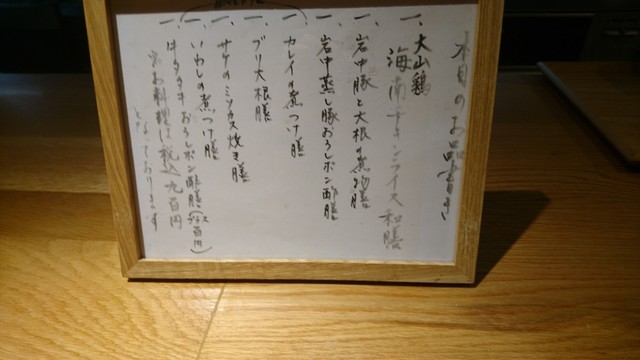 本日のお品書き
一、大山鶏
海南チキンライス和膳
一、岩中豚と大根の煮物膳
一、岩中蒸し豚おろしポン酢膳
一、カレイの煮つけ膳
一、ブリ大根膳
一、サケのミソカス焼き膳
一、いわしの煮つけ膳
一、牛タタキおろしポン酢膳(プラス百円)
お料理は税込九百円
となっております